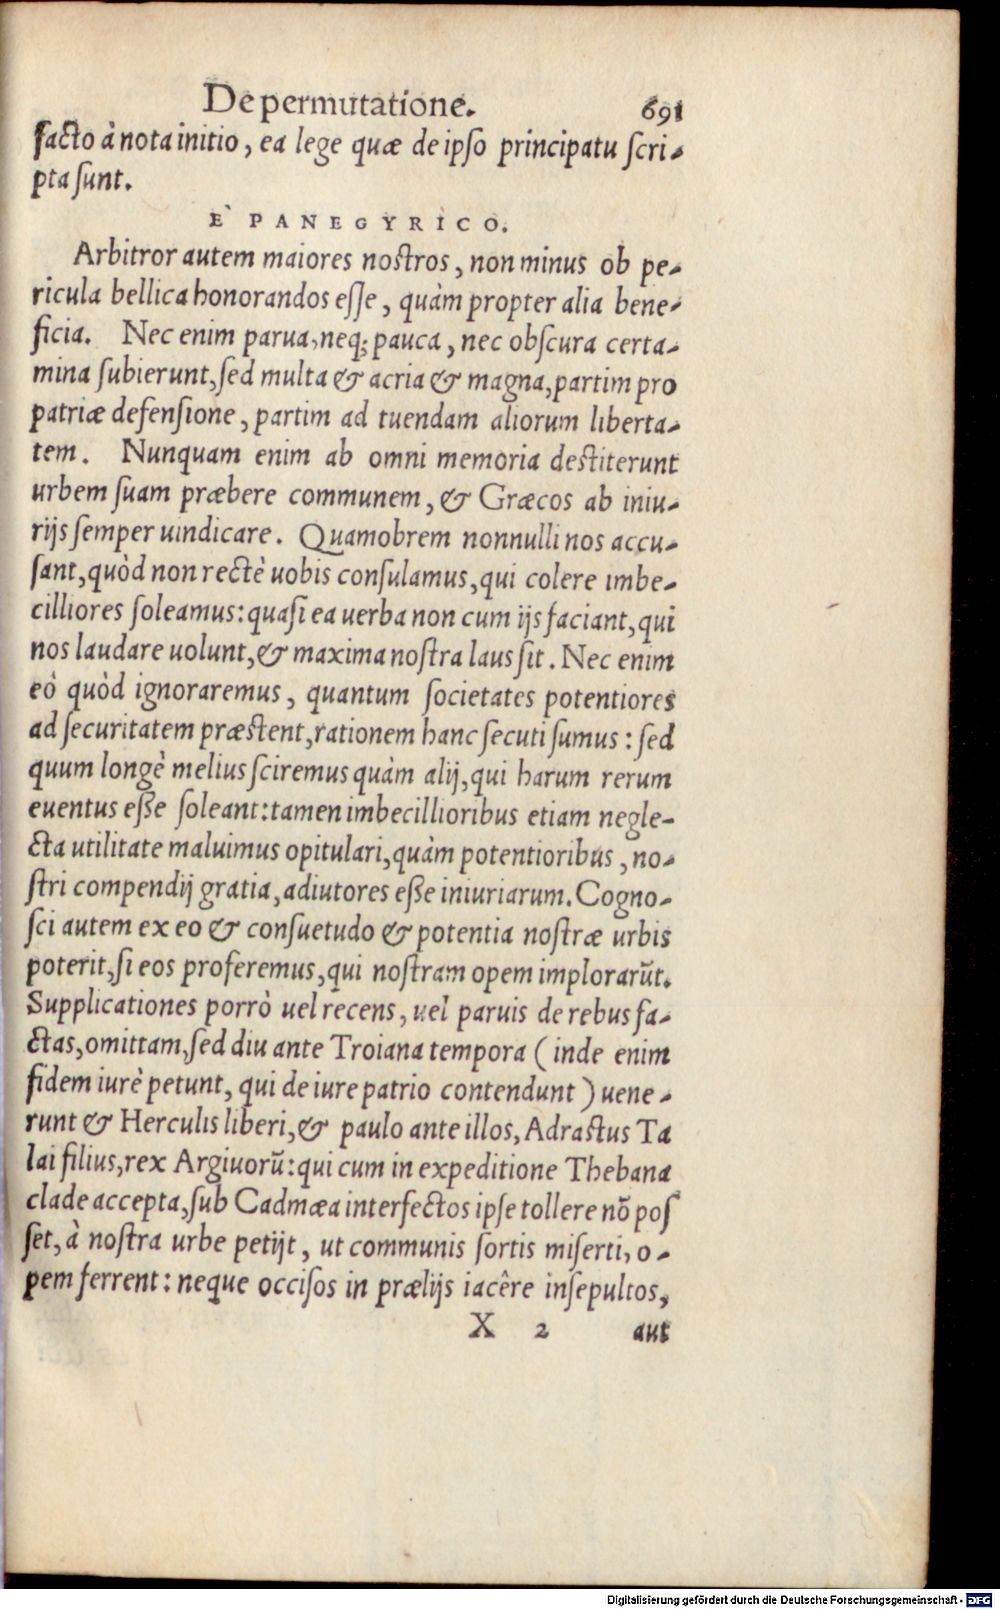 De permutatione. 691
facto à nota initio, ea lege quæ de ipso principatu scri-
pta sunt.
E` PANEGYRICO.
Arbitror autem maiores nostros, non minus ob pe-
ricula bellica honorandos esse, quàm propter alia bene-
ficia. Nec enim parua, neq; pauca, nec obscura certa-
mina subierunt, sed multa & acria & magna, partim pro
patriæ defensione, partim ad tuendam aliorum liberta-
tem. Nunquam enim ab omni memoria destiterunt
urbem suam præbere communem, & Græcos ab iniu-
rijs semper uindicare. Quamobrem nonnulli nos accu-
sant, quòd non rectè uobis consulamus, qui colere imbe-
cilliores soleamus: quasi ea uerba non cum ijs faciant, qui
nos laudare uolunt, & maxima nostra laus sit. Nec enim
eò quòd ignoraremus, quantum societates potentiores
ad securitatem præstent, rationem hanc secuti sumus: sed
quum longè melius sciremus quàm alij, qui harum rerum
euentus esse soleant: tamen imbecillioribus etiam negle-
cta utilitate maluimus opitulari, quàm potentioribus, no-
stri compendij gratia, adiutores esse iniuriarum. Cogno-
sci autem ex eo & consuetudo & potentia nostræ urbis
poterit, si eos proferemus, qui nostram opem implorarūt.
Supplicationes porrò uel recens, uel paruis de rebus fa-
ctas, omittam, sed diu ante Troiana tempora (inde enim
fidem iurè petunt, qui de iure patrio contendunt) uene-
runt & Herculis liberi, & paulo ante illos, Adrastus Ta
lai filius, rex Argiuorū: qui cum in expeditione Thebana
clade accepta, sub Cadmæa interfectos ipse tollere nō pos
set, à nostra urbe petijt, ut communis sortis miserti, o-
pem ferrent: neque occisos in prælijs iacêre insepultos,
X 2 aut
Digitalisierung gefördert durch die Deutsche Forschungsgemeinschaft - DFG